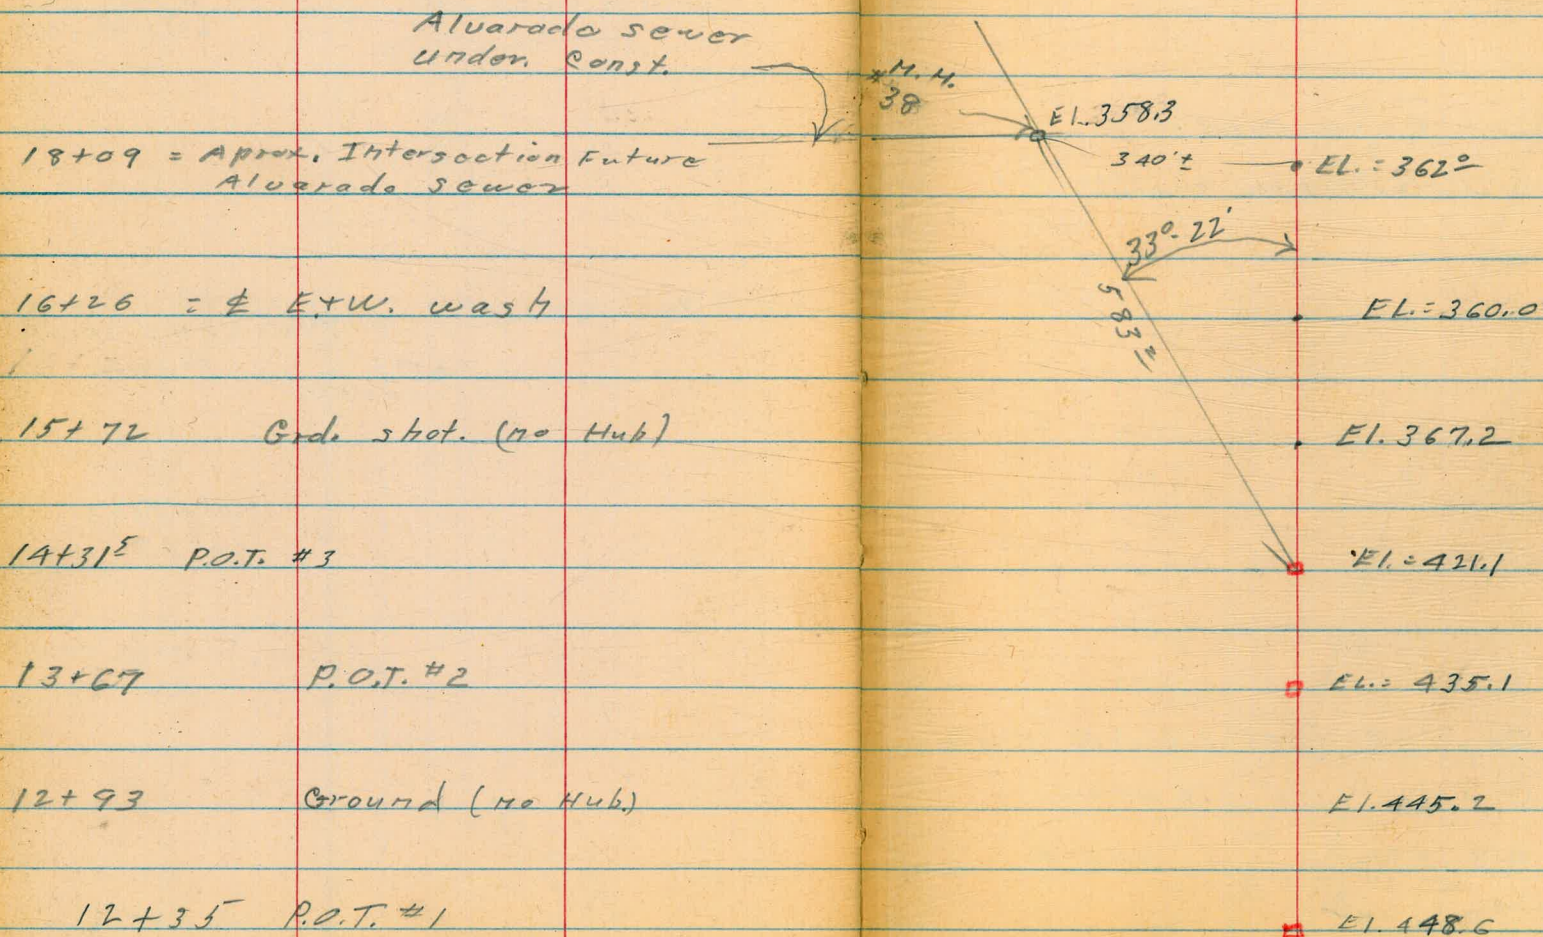 Alvarado sewer
under. Const.
M.H.
38
El. 358.3
18+09 = Aprox. Intersection Future
Alvarado sewer
340'±
EL. = 362º
33º-22'
583
16+26 = ℄ E.+W. wash
EL. = 360.0
15+72 Grd. shot. (no Hub)
El. 367.2
14+31⁵ P.O.T. #3
El. = 421.1
13+67 P.O.T. #2
EL. = 435.1
12+93 Ground (no Hub.)
El. 445.2
12+35 P.O.T. #1
El. 448.6